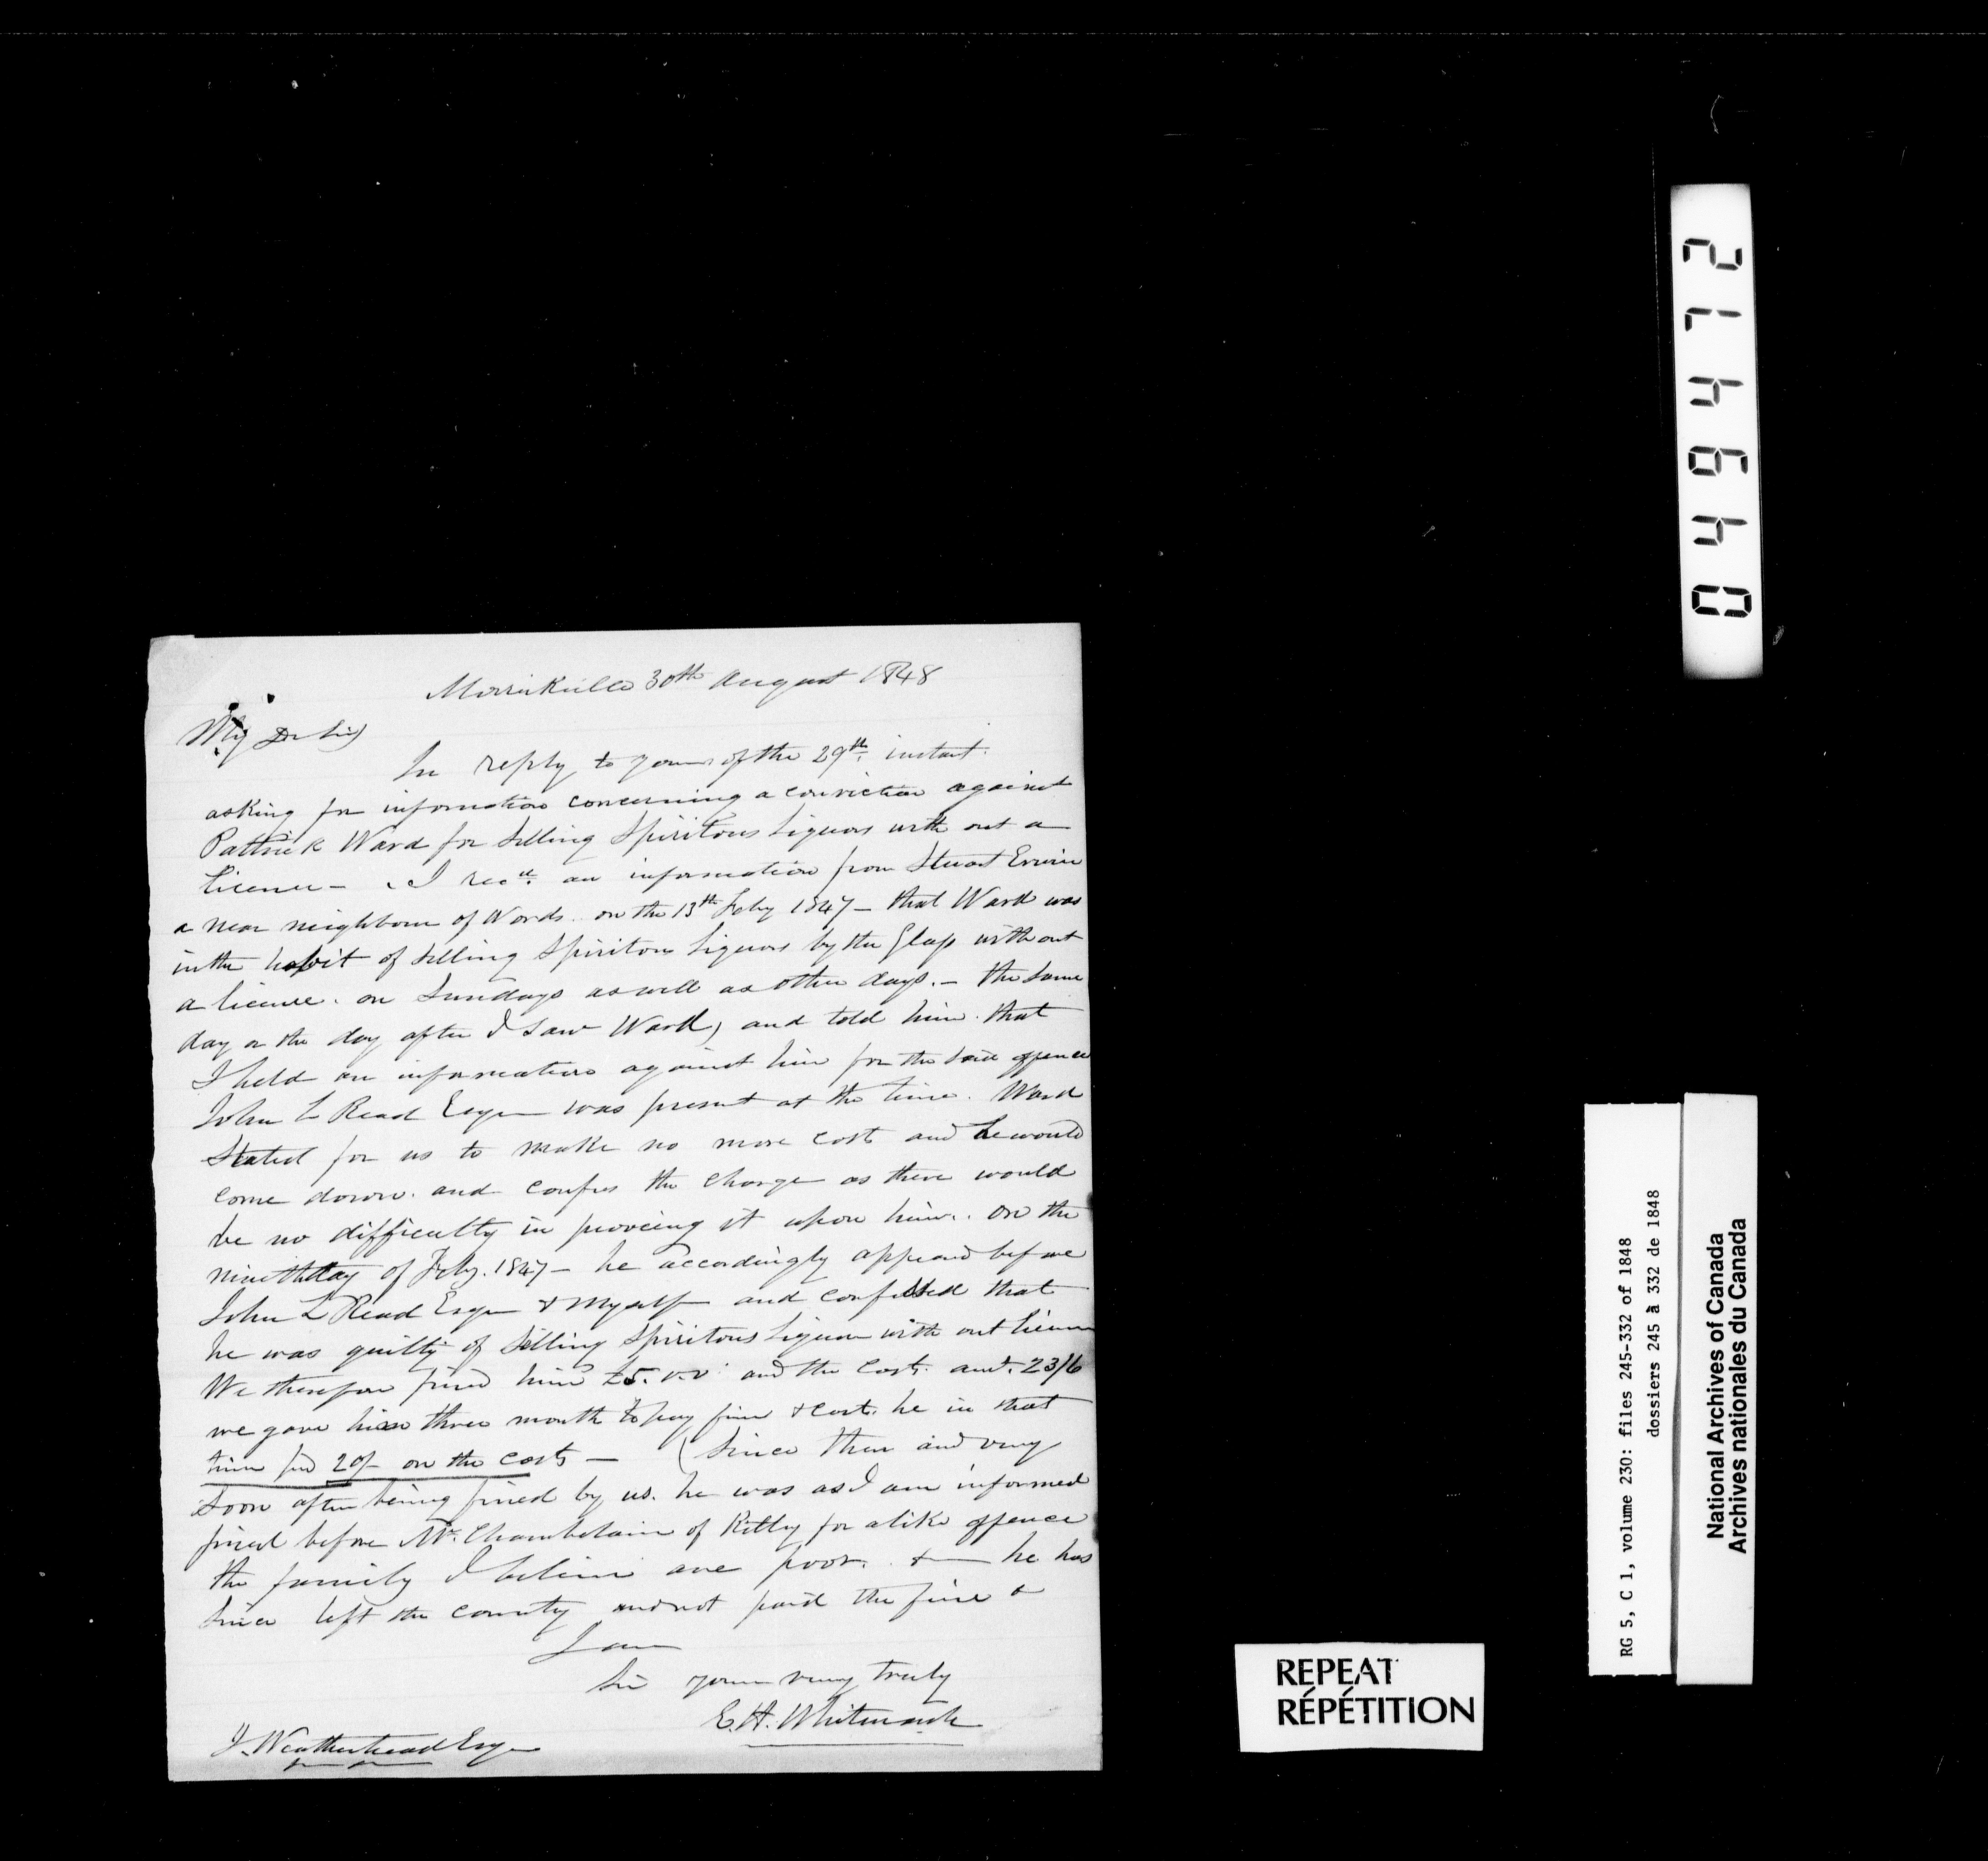 Merrickville 30th August 1848
My Dr Sir
In reply to yours of the 29th instant
asking for information concerning a conviction against
Patrick Ward for selling Spiritous Liquors with out a
licence - I recd an information from Stuart Erwin
a near neighbour of Wards. on the 13th Feby 1847 - that Ward was
in the habit of selling Spiritous Liquors by the Glass without
a licence. on Sundays as well as other days. - the same
day or the day after I saw Ward, and told him that
I held an information against him for the said offence
John L Read Esqr was present at the time. Ward
stated for us to make no more cost and he would
come down and confess the charge as there would
be no difficulty in proveing it upon him. on the
ninth day of Feby. 1847 - he accordingly appeard before
John L Read Esqr & myself and confessed that
he was guilty of selling Spiritous Liquor with out licence
We therefore fined him £5.0.0 and the cost. amt. 23/6
we gave him three month to pay fine & cost. he in that
time pd 20/- on the costs - (Since then and very
soon after being fined by us. he was as I am informed
fined before Mr. Chamberlain of Kitley for a like offence
the family I believe are poor. & he has
since left the county and not paid the fine &
I am
Sir yours very truly
E.H. Whitmarsh
J. Weatherhead Esqr
046412
RG 5, C 1, volume 230: files 245-332 of 1848
dossiers 245 à 332 de 1848
National Archives of Canada
Archives nationales du Canada
REPEAT
RÉPÉTITION